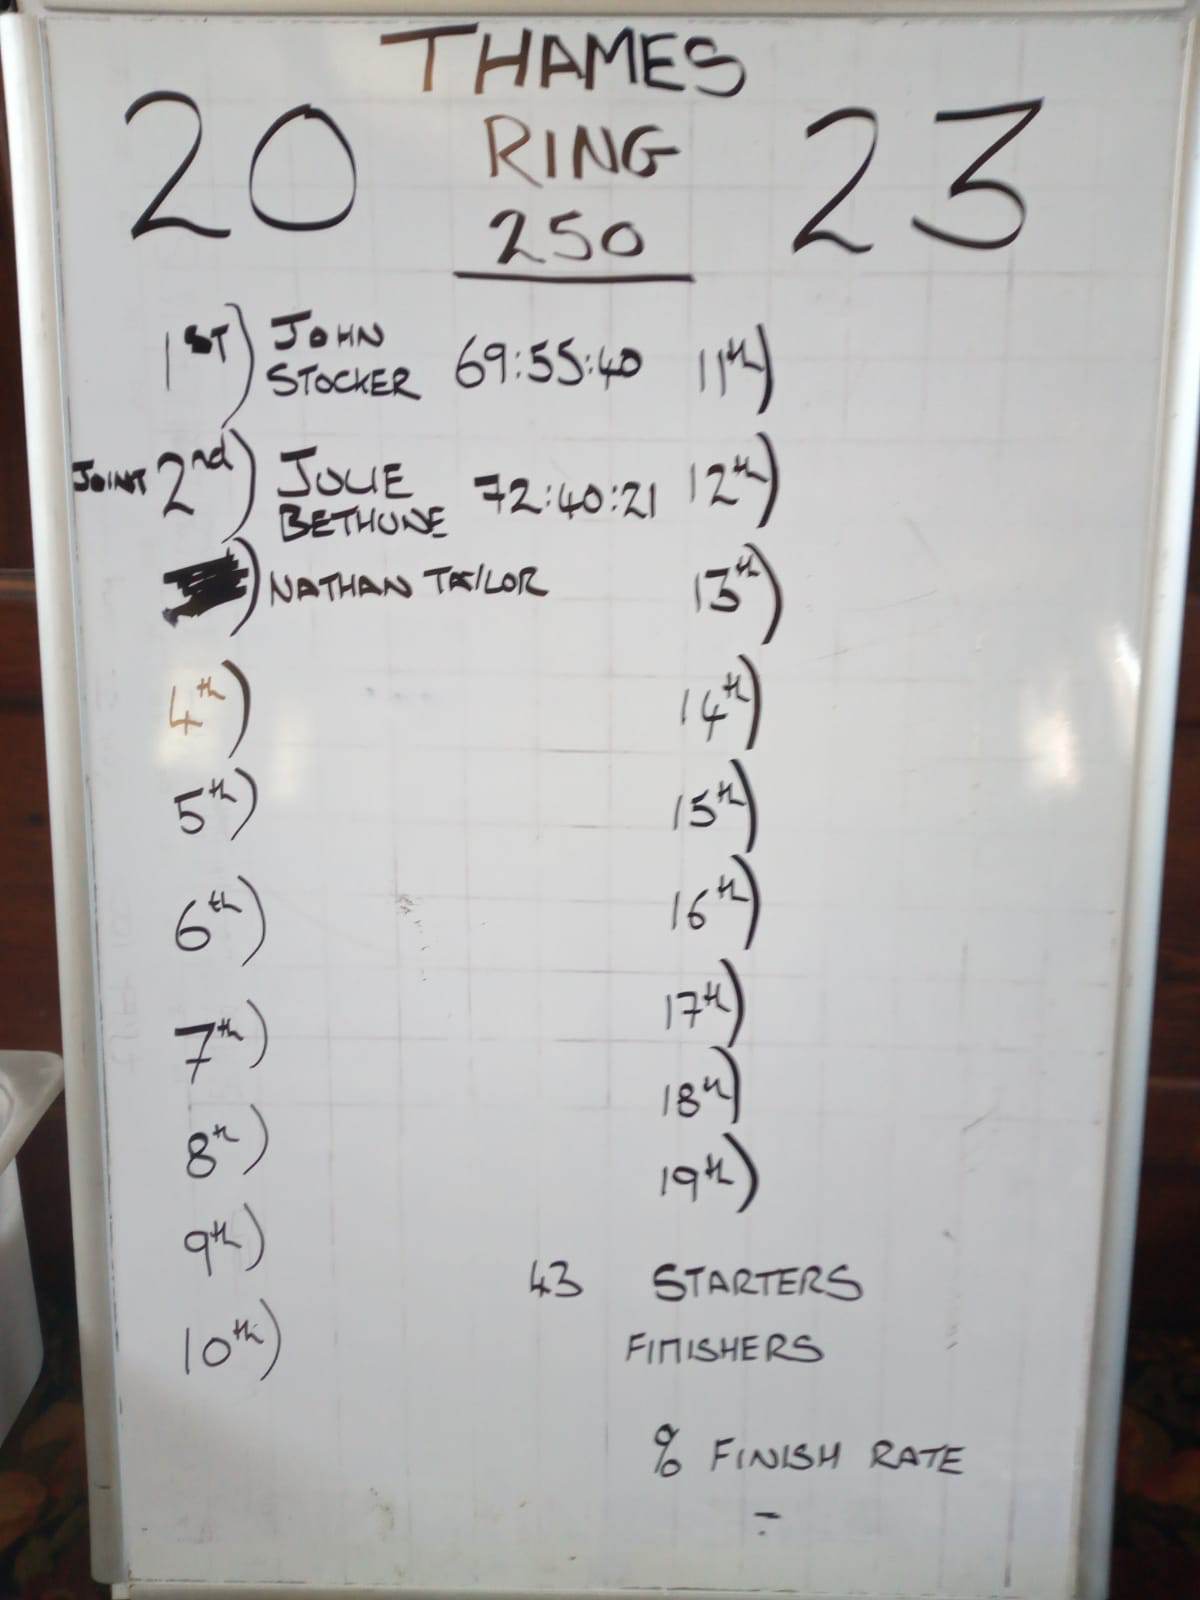 THAMES
20 RING 23
250
1ST) JOHN STOCKER 69:55:40
JOINT 2nd) JULIE BETHUNE 72:40:21
) NATHAN TAYLOR
4th)
5th)
6th)
7th)
8th)
9th)
10th)
11th)
12th)
13th)
14th)
15th)
16th)
17th)
18th)
19th)
43 STARTERS
FINISHERS
% FINISH RATE
-